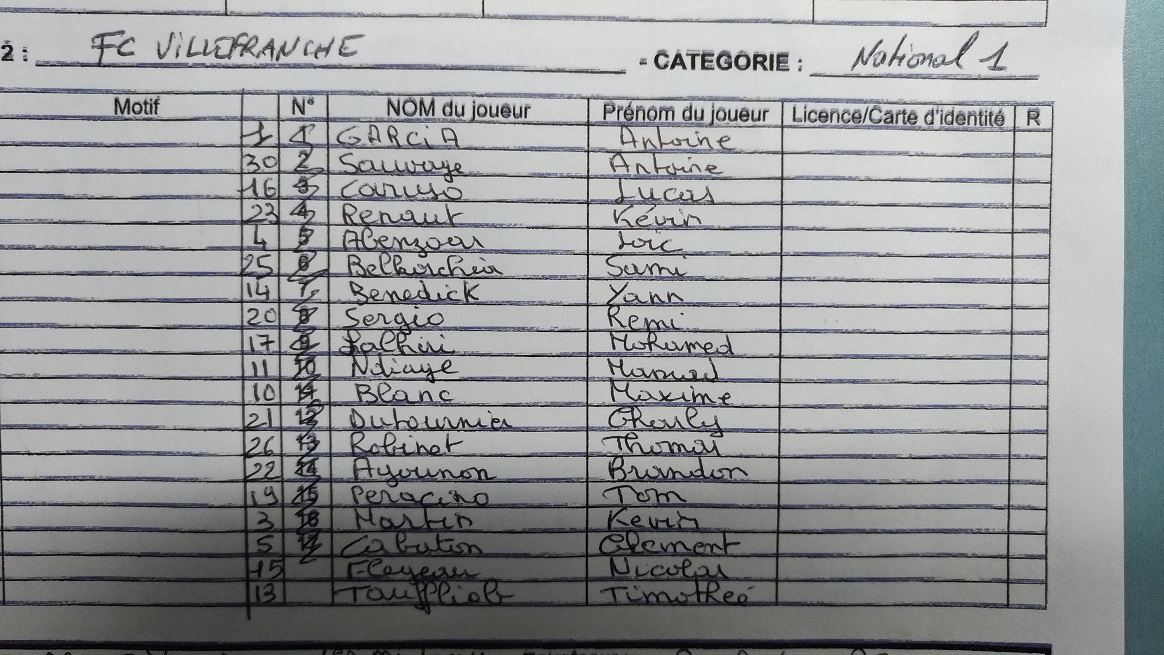 2 : FC ViLLEFRANCHE - CATEGORIE : National 1
Motif N° NOM du joueur Prénom du joueur Licence/Carte d'identité R
1 1 GARCiA Antoine
30 2 Sauvage Antoine
16 3 Caruso Lucas
23 4 Renaut Kévin
4 5 Abenzoar Loïc
25 6 Belkorchia Sami
14 7 Benedick Yann
20 8 Sergio Remi
17 9 Lalhiri Mohamed
11 10 Ndiaye
10 11 Blanc Maxime
21 12 Dutournier Charly
26 13 Robinet Thomas
22 14 Ayounon Brandon
19 15 Peracino Tom
3 16 Martin Kevin
5 17 Cabaton Clement
15 Flegeau Nicolas
13 Taufflieb Timotheé